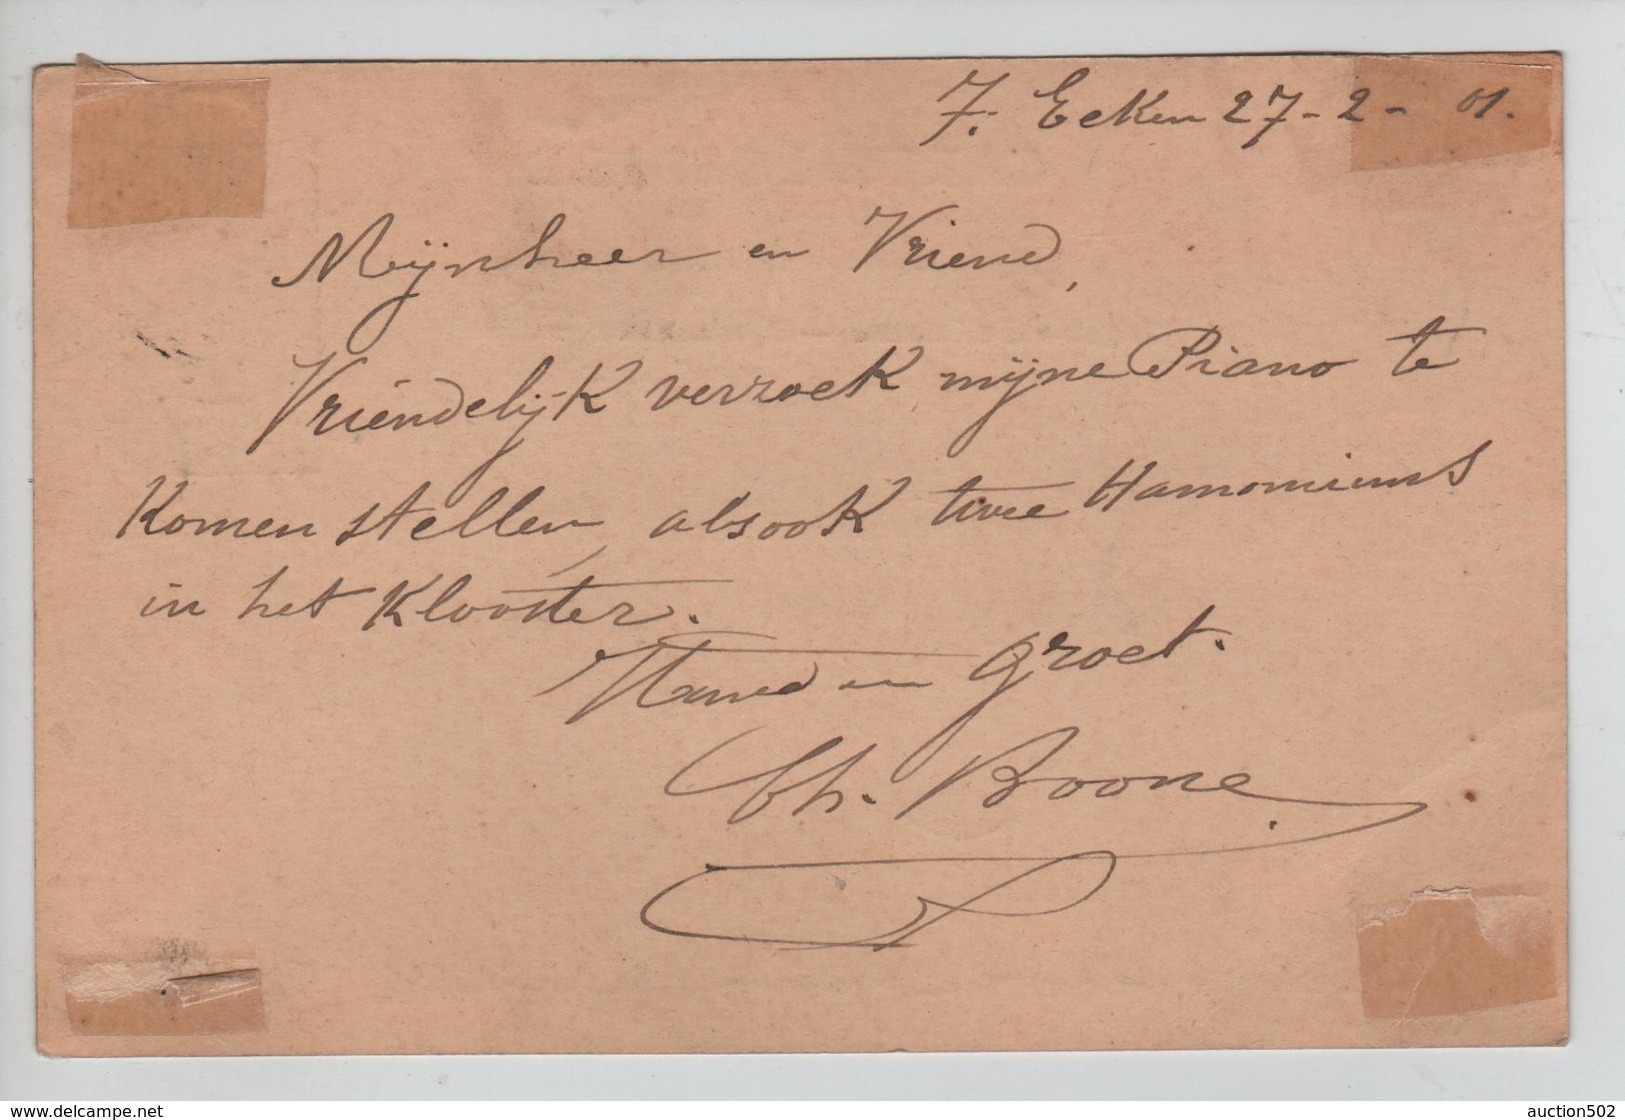 7. Ecken 27-2-01.
Mijnheer en Vriend,
Vriendelijk verzoek mijne Piano te
Komen stellen, alsook twee Hamoniums
in het Klooster.
Hand en groet.
Ch. Boone
auction502